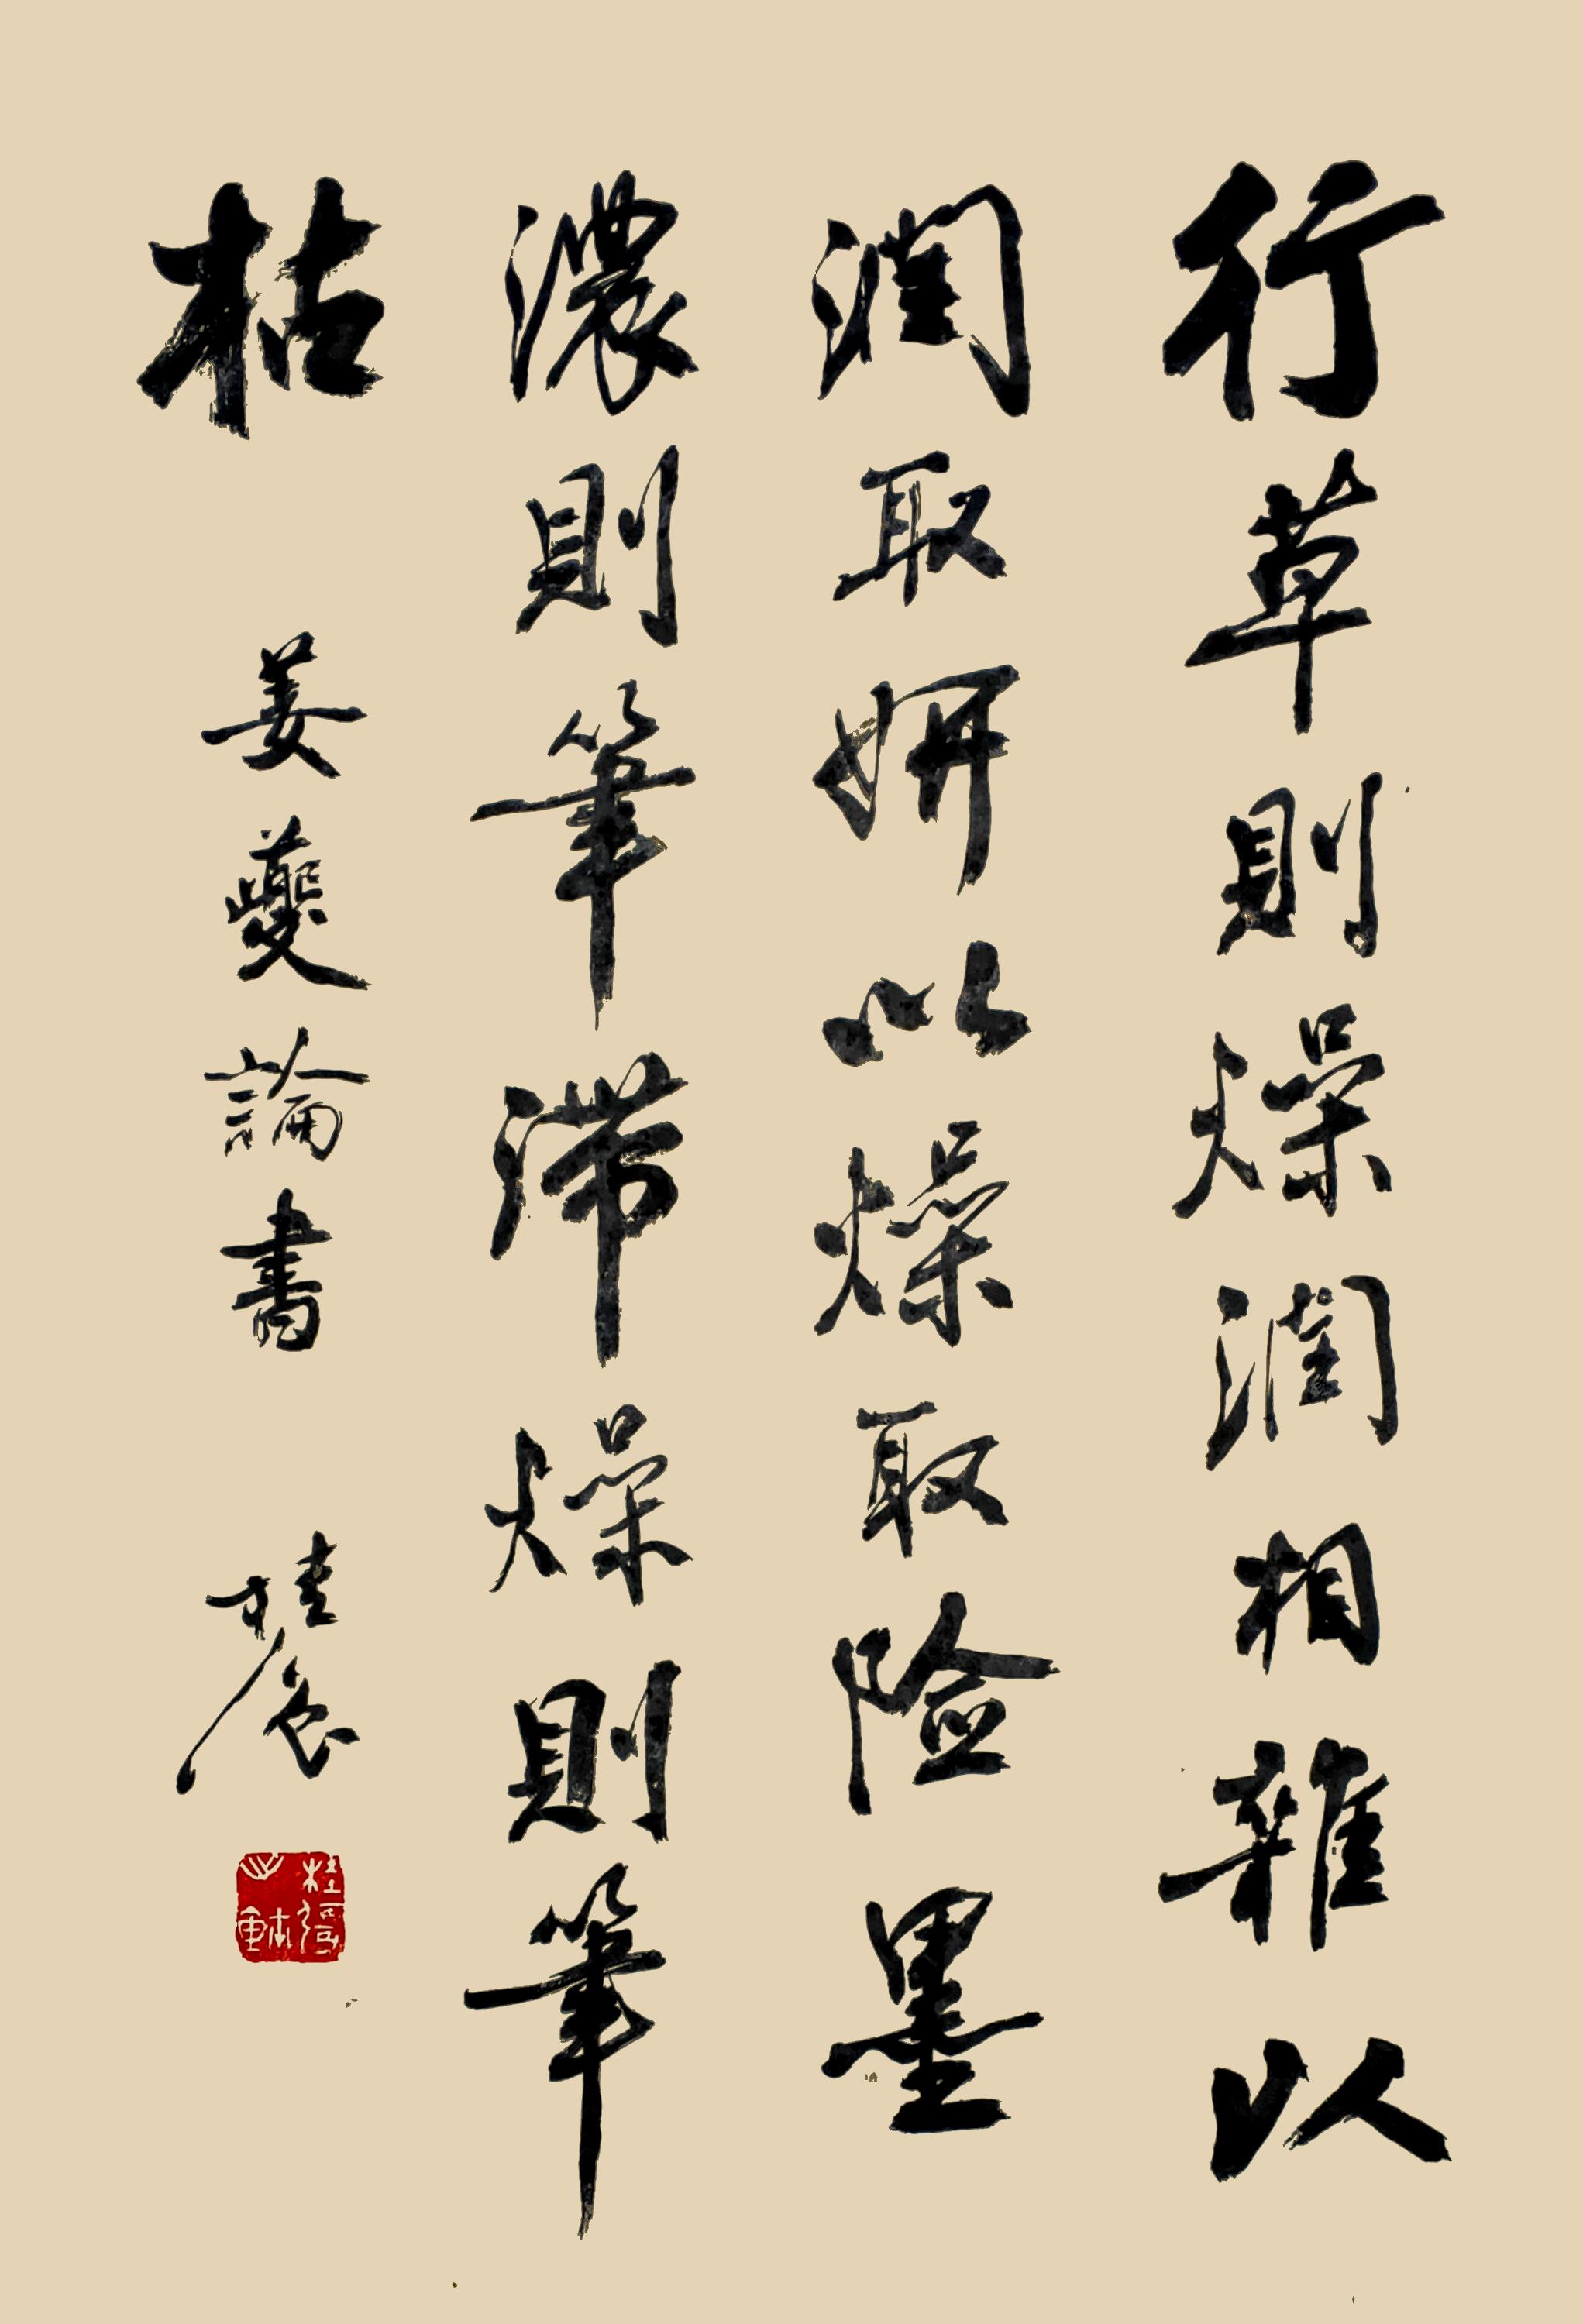 行草則燥潤相雜以
潤取妍以燥取險墨
濃則筆滯燥則筆
枯
姜夔論書